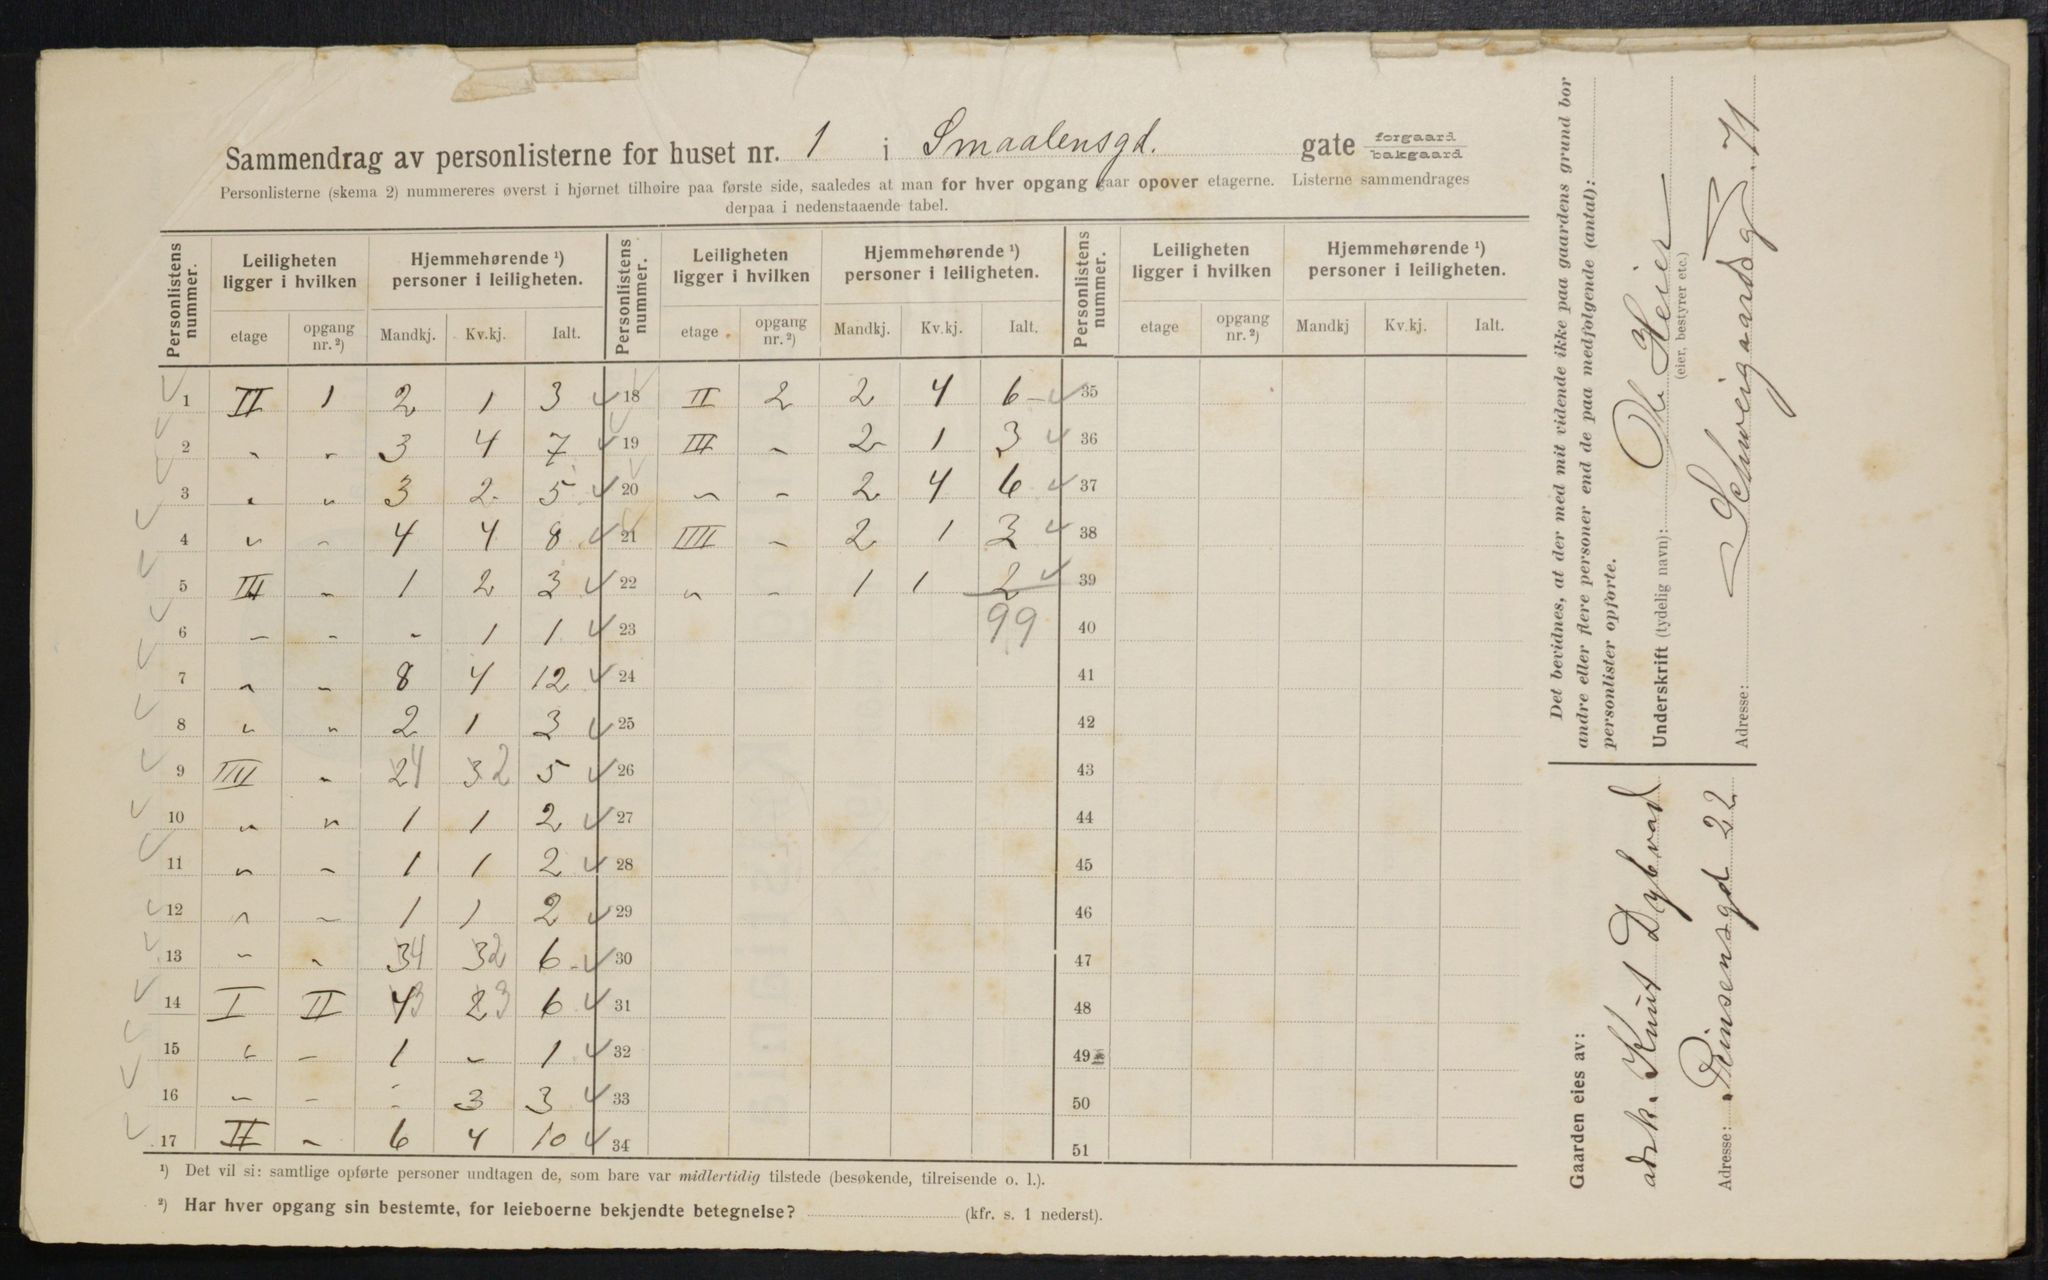 Sammendrag av personlisterne for huset nr. 1 i Smaalensgd. gate forgaard bakgaard
Personlisterne (skema 2) nummereres øverst i hjørnet tilhøire paa første side, saaledes at man for hver opgang gaar opover etagerne. Listerne sammendrages
derpaa i nedenstaaende tabel.
Personlistens nummer. Leiligheten ligger i hvilken Hjemmehørende ¹) personer i leiligheten. Personlistens nummer. Leiligheten ligger i hvilken Hjemmehørende ¹) personer i leiligheten. Personlistens nummer. Leiligheten ligger i hvilken Hjemmehørende ¹) personer i leiligheten.
etage opgang nr. ²) Mandkj. Kv.kj. Ialt. etage opgang nr. ²) Mandkj. Kv.kj. Ialt. etage opgang nr. ²) Mandkj Kv.kj. Ialt.
1 II 1 2 1 3 18 II 2 2 4 6 35
2 " " 3 4 7 19 III " 2 1 3 36
3 " " 3 2 5 20 " " 2 4 6 37
4 " " 4 4 8 21 IIII " 2 1 3 38
5 III " 1 2 3 22 " " 1 1 2 39
6 " " " 1 1 23 99 40
7 " " 8 4 12 24 41
8 " " 2 1 3 25 42
9 IIII " 24 32 5 26 43
10 " " 1 1 2 27 44
11 " " 1 1 2 28 45
12 " " 1 1 2 29 46
13 " " 34 32 6 30 47
14 I II 43 23 6 31 48
15 " " 1 " 1 32 49
16 " " " 3 3 33 50
17 II " 6 4 10 34 51
¹) Det vil si: samtlige opførte personer undtagen de, som bare var midlertidig tilstede (besøkende, tilreisende o. l.).
²) Har hver opgang sin bestemte, for leieboerne bekjendte betegnelse? (kfr. s. 1 nederst).
Det bevidnes, at der med mit vidende ikke paa gaardens grund bor
andre eller flere personer end de paa medfølgende (antal):
personlister opførte.
Underskrift (tydelig navn): Heier
(eier, bestyrer etc.)
Adresse: Schweigaardsg. 71
Gaarden eies av:
Knut Dybvad
Adresse: Prinsensgd 22